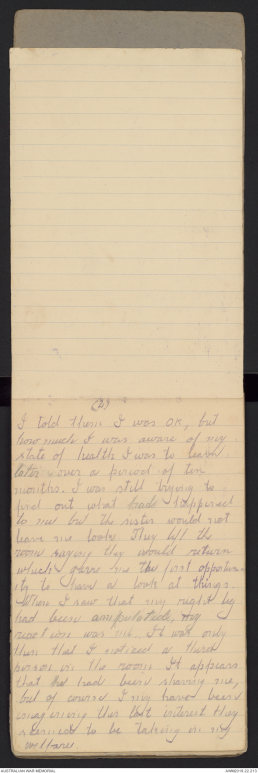 (2)
I told them I was OK, but
how much I was aware of my
state of health I was to learn
later over a period of ten
months. I was still trying to
find out what had happened
to me but the sister would not
leave me look. They left the
room saying they would return
which gave me the first opportun-
ity to have a look at things.
When I saw that my right leg
had been amputated, my
reaction was nil. It was only
then that I noticed a third
person in the room. It appears
that he had been shaving me,
but of course I may have been
imagining the interest they
seemed to be taking in my
welfare.
AUSTRALIAN WAR MEMORIAL